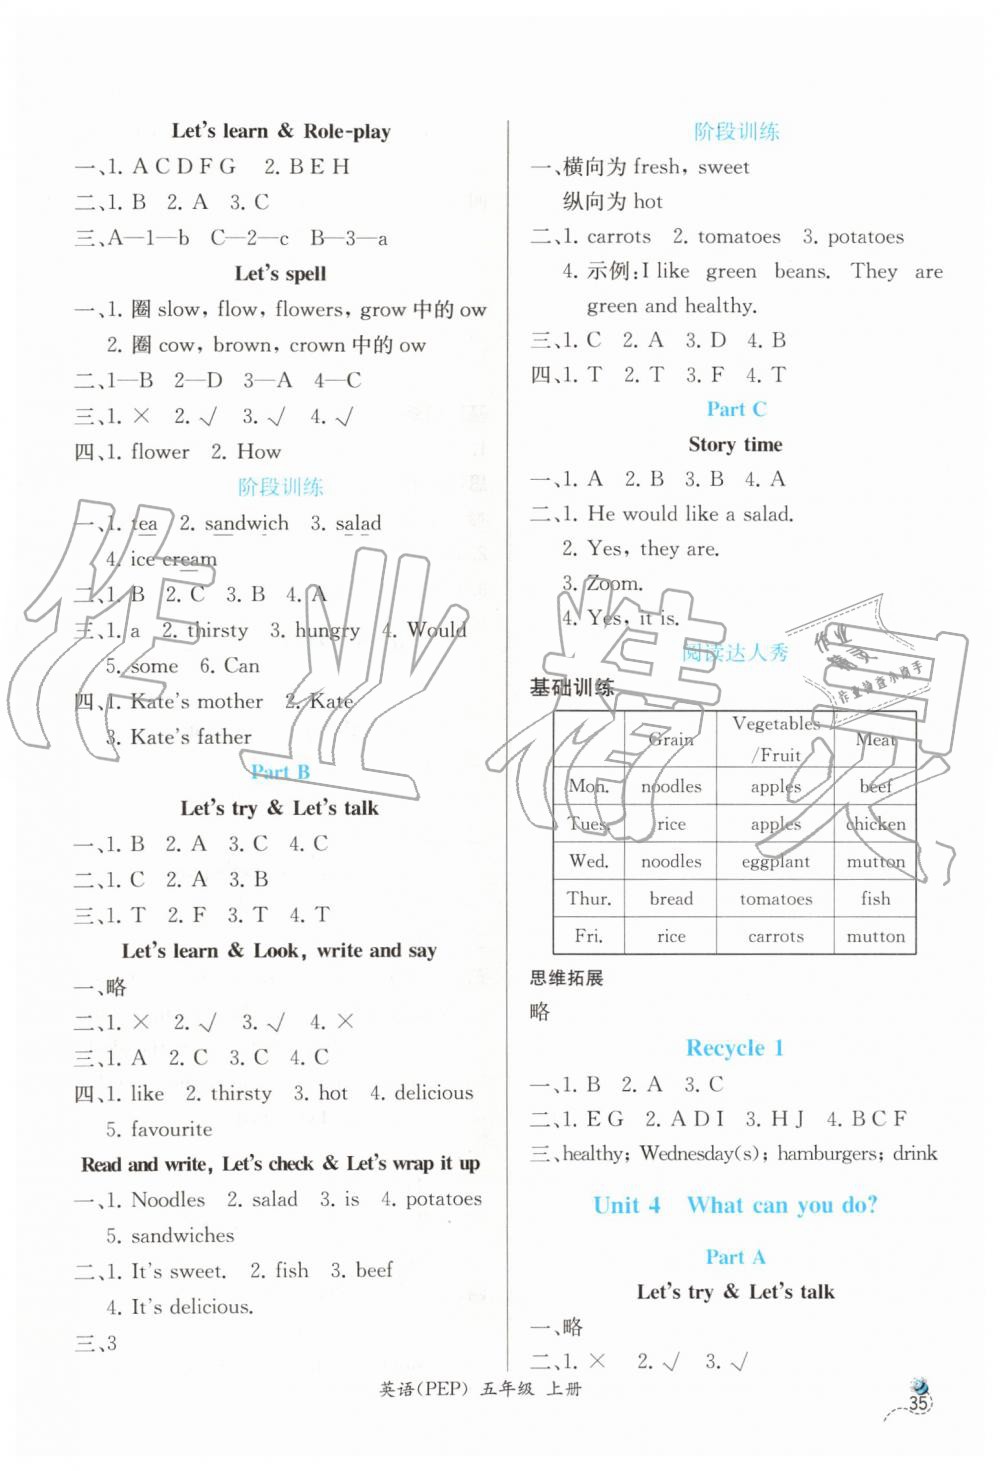 Let's learn & Role-play
一、1. A C D F G  2. B E H
二、1. B  2. A  3. C
三、A—1—b  C—2—c  B—3—a
Let's spell
一、1. 圈 slow, flow, flowers, grow 中的 ow
2. 圈 cow, brown, crown 中的 ow
二、1—B  2—D  3—A  4—C
三、1. ×  2. √  3. √  4. √
四、1. flower  2. How
阶段训练
一、1. tea  2. sandwich  3. salad
4. ice cream
二、1. B  2. C  3. B  4. A
三、1. a  2. thirsty  3. hungry  4. Would
5. some  6. Can
四、1. Kate's mother  2. Kate
3. Kate's father
Part B
Let's try & Let's talk
一、1. B  2. A  3. C  4. C
二、1. C  2. A  3. B
三、1. T  2. F  3. T  4. T
Let's learn & Look, write and say
一、略
二、1. ×  2. √  3. √  4. ×
三、1. A  2. C  3. C  4. C
四、1. like  2. thirsty  3. hot  4. delicious
5. favourite
Read and write, Let's check & Let's wrap it up
一、1. Noodles  2. salad  3. is  4. potatoes
5. sandwiches
二、1. It's sweet.  2. fish  3. beef
4. It's delicious.
三、3
阶段训练
一、横向为 fresh, sweet
纵向为 hot
二、1. carrots  2. tomatoes  3. potatoes
4. 示例:I like green beans. They are
green and healthy.
三、1. C  2. A  3. D  4. B
四、1. T  2. T  3. F  4. T
Part C
Story time
一、1. A  2. B  3. B  4. A
二、1. He would like a salad.
2. Yes, they are.
3. Zoom.
4. Yes, it is.
阅读达人秀
基础训练
Grain  Vegetables/Fruit  Meat
Mon.  noodles  apples  beef
Tues.  rice  apples  chicken
Wed.  noodles  eggplant  mutton
Thur.  bread  tomatoes  fish
Fri.  rice  carrots  mutton
思维拓展
略
Recycle 1
一、1. B  2. A  3. C
二、1. E G  2. A D I  3. H J  4. B C F
三、healthy; Wednesday(s); hamburgers; drink
Unit 4  What can you do?
Part A
Let's try & Let's talk
一、略
二、1. ×  2. √  3. √
英语(PEP) 五年级 上册
35
作业精灵